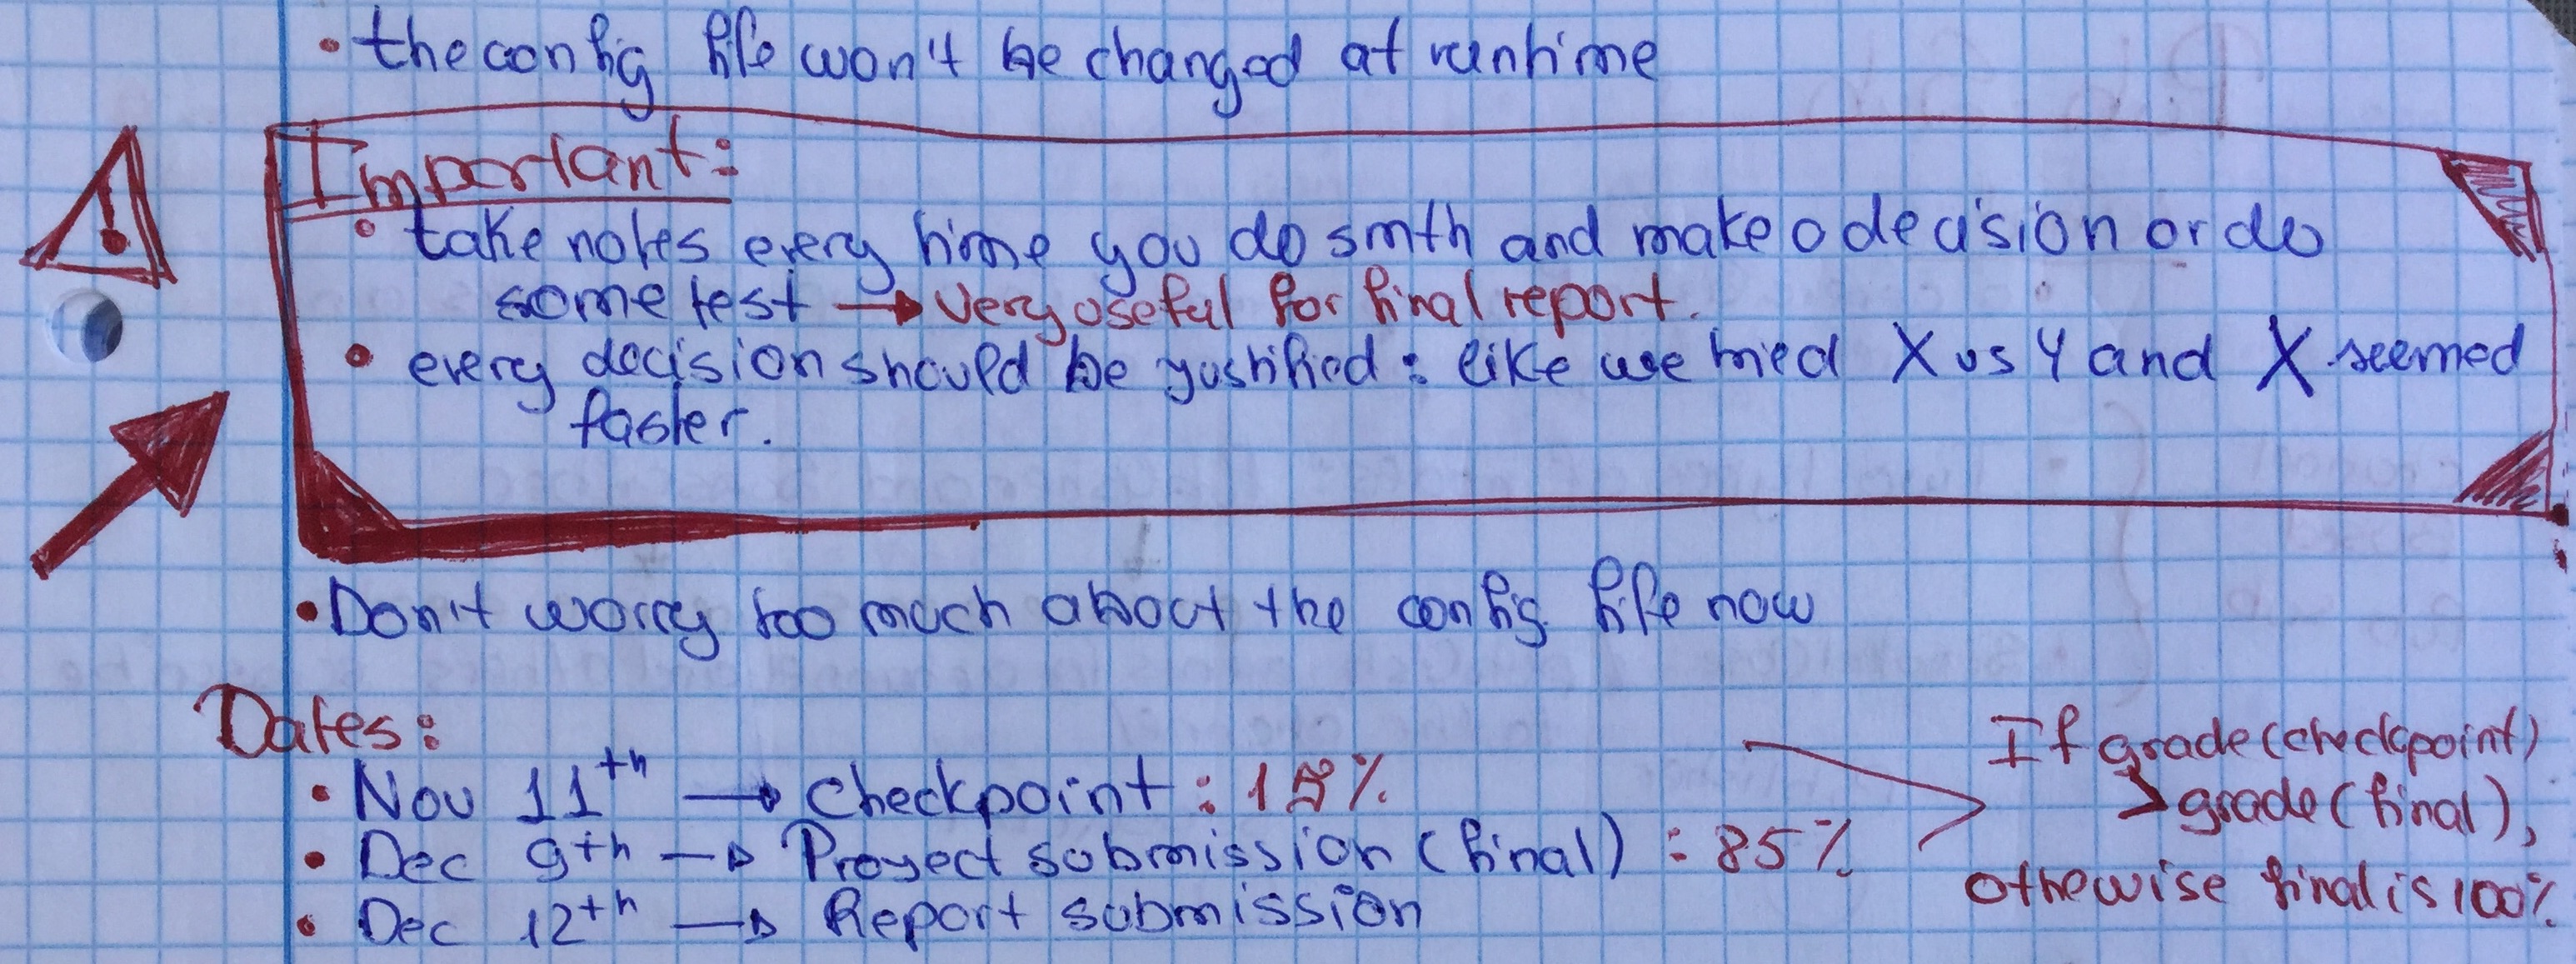 • the config file won't be changed at runtime
Important:
• take notes every time you do smth and make a decision or do
some test → very useful for final report.
• every decision should be justified : like we tried X vs Y and X seemed
faster.
• Don't worry too much about the config file now
Dates:
• Nov 11th → checkpoint : 15%
• Dec 9th → Proyect submission (final) : 85%
• Dec 12th → Report submission
If grade(checkpoint)
> grade(final),
othewise final is 100%